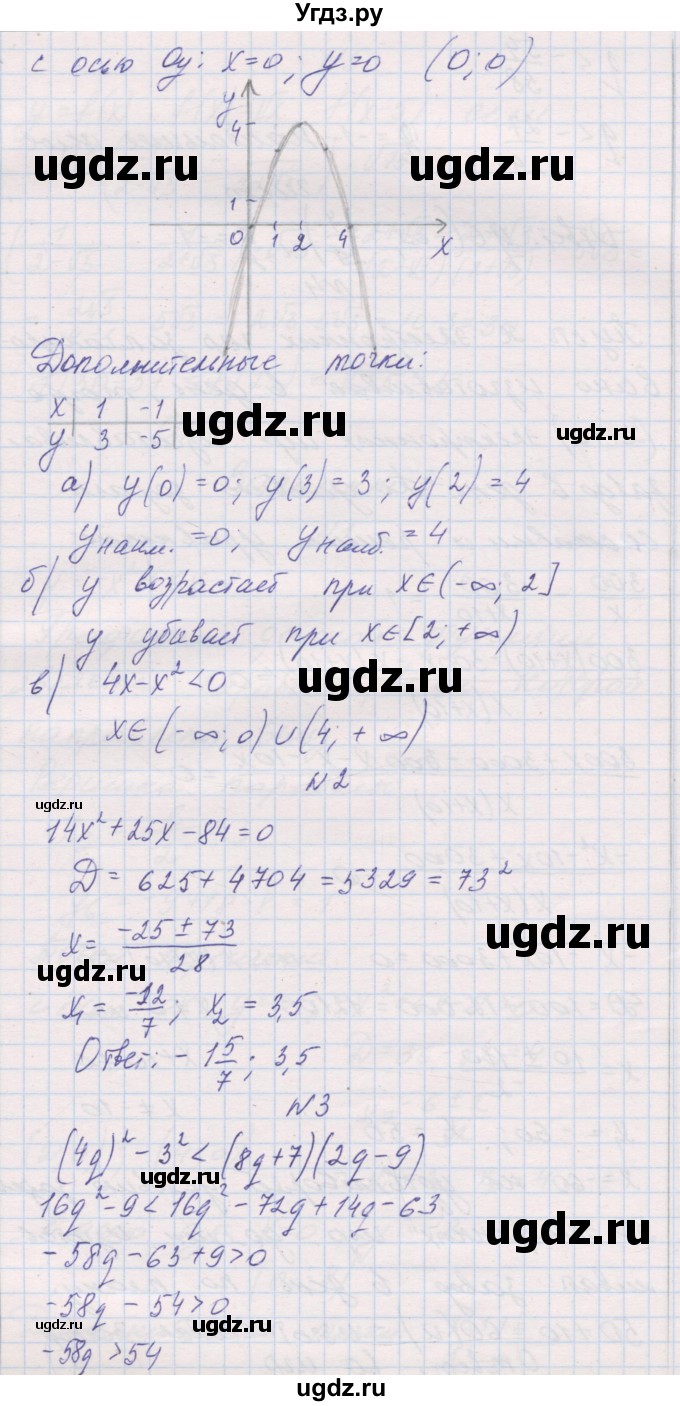 Угдз.ру
с осью Oy: x=0; y=0 (0; 0)
y
4
ugdz.ru ugdz.ru
1
0 1 2 4 x
Дополнительные точки:
x | 1 | -1 |
y | 3 | -5 |
ugdz.ru ugdz.ru
а) y(0)=0; y(3)=3; y(2)=4
yнаим.=0; yнаиб.=4
б) y возрастает при x∈(-∞; 2]
y убывает при x∈[2; +∞)
в) 4x-x²<0
ugdz.ru
x∈(-∞; 0)∪(4; +∞)
N2
ugdz.ru
14x²+25x-84=0
D=625+4704=5329=73²
x= (-25±73)/28
ugdz.ru ugdz.ru
x₁= -12/7; x₂=3,5
Ответ: -1 5/7; 3,5
N3
(4q)²-3²<(8q+7)(2q-9)
ugdz.ru
16q²-9<16q²-72q+14q-63
-58q-63+9>0
ugdz.ru
-58q-54>0
ugdz.ru ugdz.ru
-58q>54
ugdz.ru